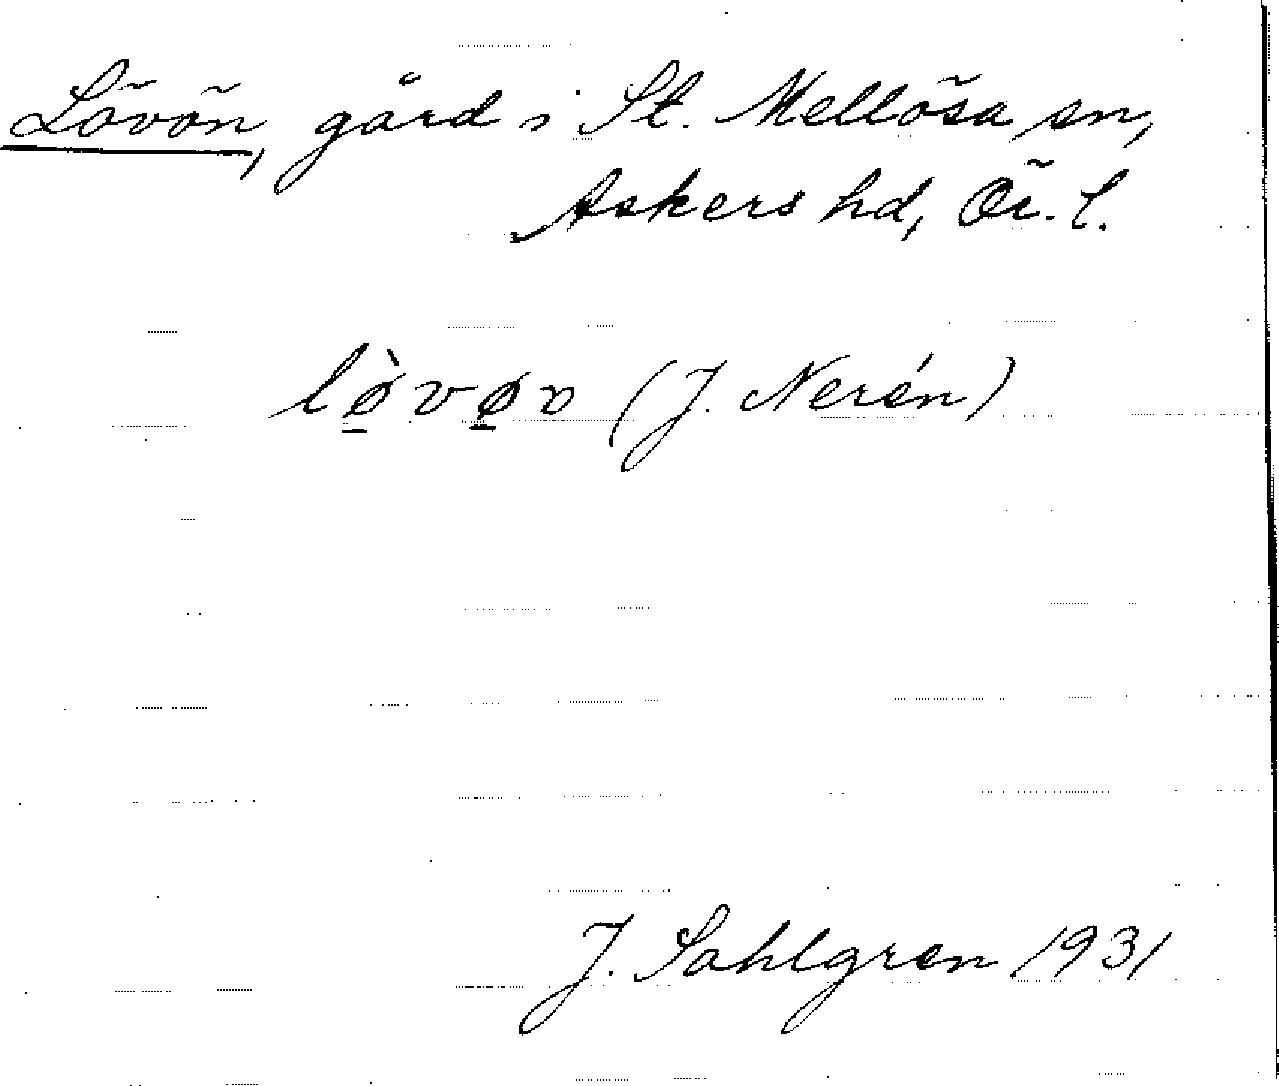 Lövön, gård i St. Mellösa sn,
Askers hd, Ör. l.
lø̲̀vø̲v (J. Nerén)
J. Sahlgren 1931